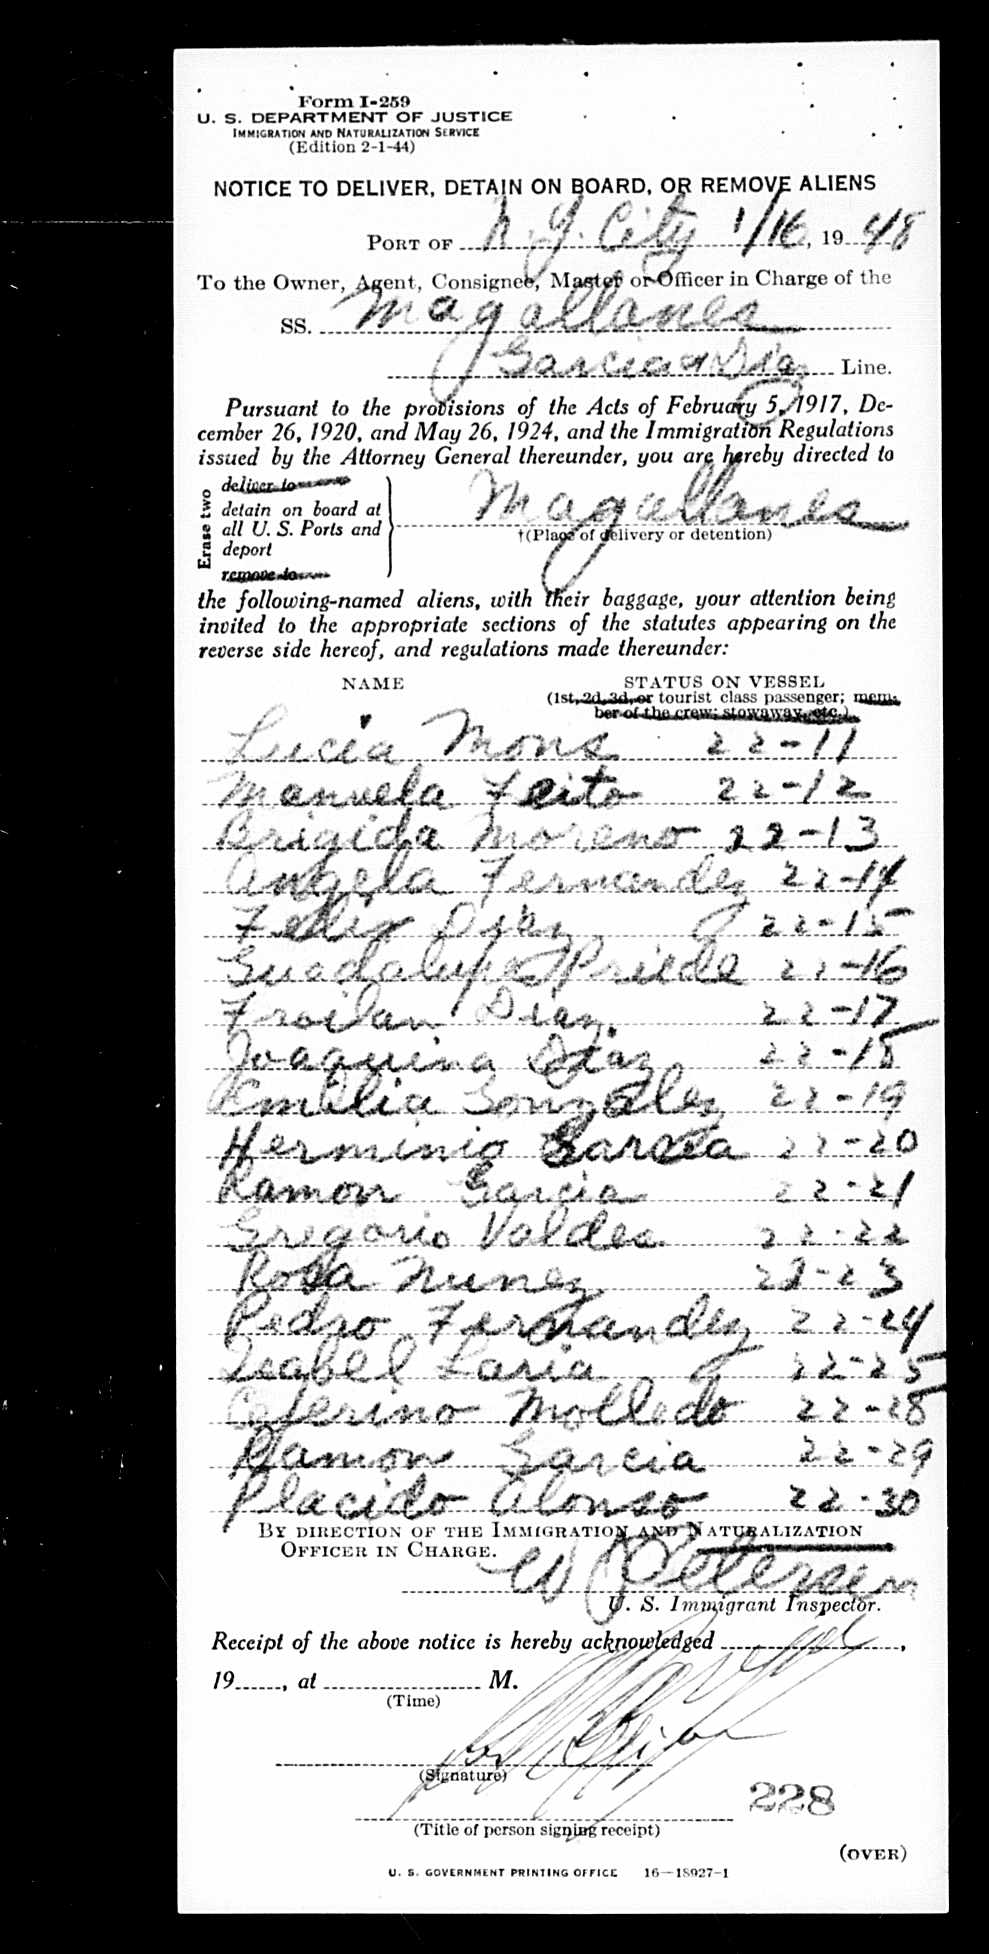 Form I-259
U. S. DEPARTMENT OF JUSTICE
IMMIGRATION AND NATURALIZATION SERVICE
(Edition 2-1-44)
NOTICE TO DELIVER, DETAIN ON BOARD, OR REMOVE ALIENS
PORT OF N. Y. City 1/16, 1948
To the Owner, Agent, Consignee, Master or Officer in Charge of the
SS. Magallanes
Garcia & Diaz Line.
Pursuant to the provisions of the Acts of February 5, 1917, De-
cember 26, 1920, and May 26, 1924, and the Immigration Regulations
issued by the Attorney General thereunder, you are hereby directed to
Erase two
deliver to
detain on board at
all U. S. Ports and
deport
remove to
Magallanes
†(Place of delivery or detention)
the following-named aliens, with their baggage, your attention being
invited to the appropriate sections of the statutes appearing on the
reverse side hereof, and regulations made thereunder:
NAME STATUS ON VESSEL
(1st, 2d, 3d, or tourist class passenger; mem-
ber of the crew; stowaway, etc.)
Lucia Mons 22-11
Manuela Feito 22-12
Brigida Moreno 22-13
Angela Fernandez 22-14
Felix Diaz 22-15
Guadalupe Priede 22-16
Froilan Diaz 22-17
Joaquina Diaz 22-18
Emilia Gonzalez 22-19
Herminio Garcia 22-20
Ramon Garcia 22-21
Gregorio Valdes 22-22
Rosa Nunez 22-23
Pedro Fernandez 22-24
Isabel Faria 22-25
Ceferino Molledo 22-28
Ramon Garcia 22-29
Placido Alonso 22-30
BY DIRECTION OF THE IMMIGRATION AND NATURALIZATION
OFFICER IN CHARGE.
W Petersen
U. S. Immigrant Inspector.
Receipt of the above notice is hereby acknowledged ,
19 , at M.
(Time)
(Signature)
228
(Title of person signing receipt)
(OVER)
U. S. GOVERNMENT PRINTING OFFICE 16—18927-1